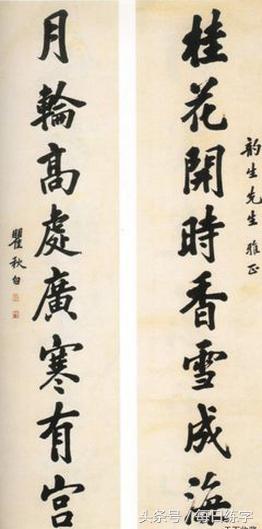 韵生先生雅正
桂花開時香雪成海
月輪高處廣寒有宮
瞿秋白
头条号/每日练字